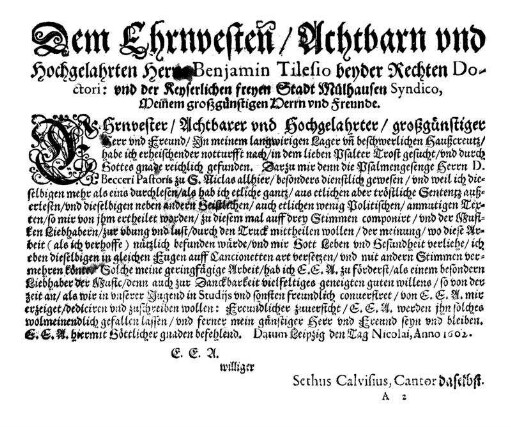 Dem Ehrnvesten / Achtbarn vnd
Hochgelahrten Herrn Benjamin Tilesio beyder Rechten Do-
ctori: vnd der Keyserlichen freyen Stadt Mülhausen Syndico,
Meinem großgünstigen Herrn vnd Freunde.
EHrnvester / Achtbarer vnd Hochgelahrter / großgünstiger
Herr vnd Freund / In meinem langwirigen Lager vn̄ beschwerlichen Haußcreutz /
habe ich erheischender notturfft nach / in dem lieben Psalter Trost gesucht / vnd durch
Gottes gnade reichlich gefunden. Darzu mir denn die Psalmengesenge Herrn D.
Becceri Pastoris zu S. Niclas allhier / besonders dienlich gewesen / vnd weil ich die-
selbigen mehr als eins durchlesen / als hab ich etliche gantz / aus etlichen aber tröstliche Sententz außz-
erlesen / vnd dieselbigen neben andern Geistlichen / auch etlichen wenig Politischen / anmutigen Tex-
ten / so mir von jhm ertheilet worden / zu diesem mal auff drey Stimmen componirt / vnd der Musi-
ken Liebhabern / zur vbung vnd lust / durch den Truck mittheilen wollen / der meinung / wo diese Ar-
beit (als ich verhoffe) nützlich befunden würde / vnd mir Gott Leben vnd Gesundheit verliehe / ich
eben dieselbigen in gleichen Fugen auff Canzonetten art versetzen / vnd mit andern Stimmen ver-
mehren könte. Solche meine geringfügige Arbeit / hab ich E. E. A. zu förderst / als einem besondern
Liebhaber der Music / denn auch zur Danckbarkeit vielfeltiges geneigten guten willens / so von der
zeit an / als wir in vnserer Jugend in Studijs vnd sonsten freundlich conversiret / von E. E. A. mir
erzeiget / dediciren vnd zuschreiben wollen: Freundlicher zuversicht / E. E. A. werden jhn solches
wolmeinendlich gefallen lassen / vnd ferner mein günstiger Herr vnd Freund seyn vnd bleiben.
E. E. A. hiermit Göttlicher gnaden befehlend. Datum Leipzig den Tag Nicolai, Anno 1602.
E. E. A.
williger
Sethus Calvisius, Cantor daselbst.
A 2